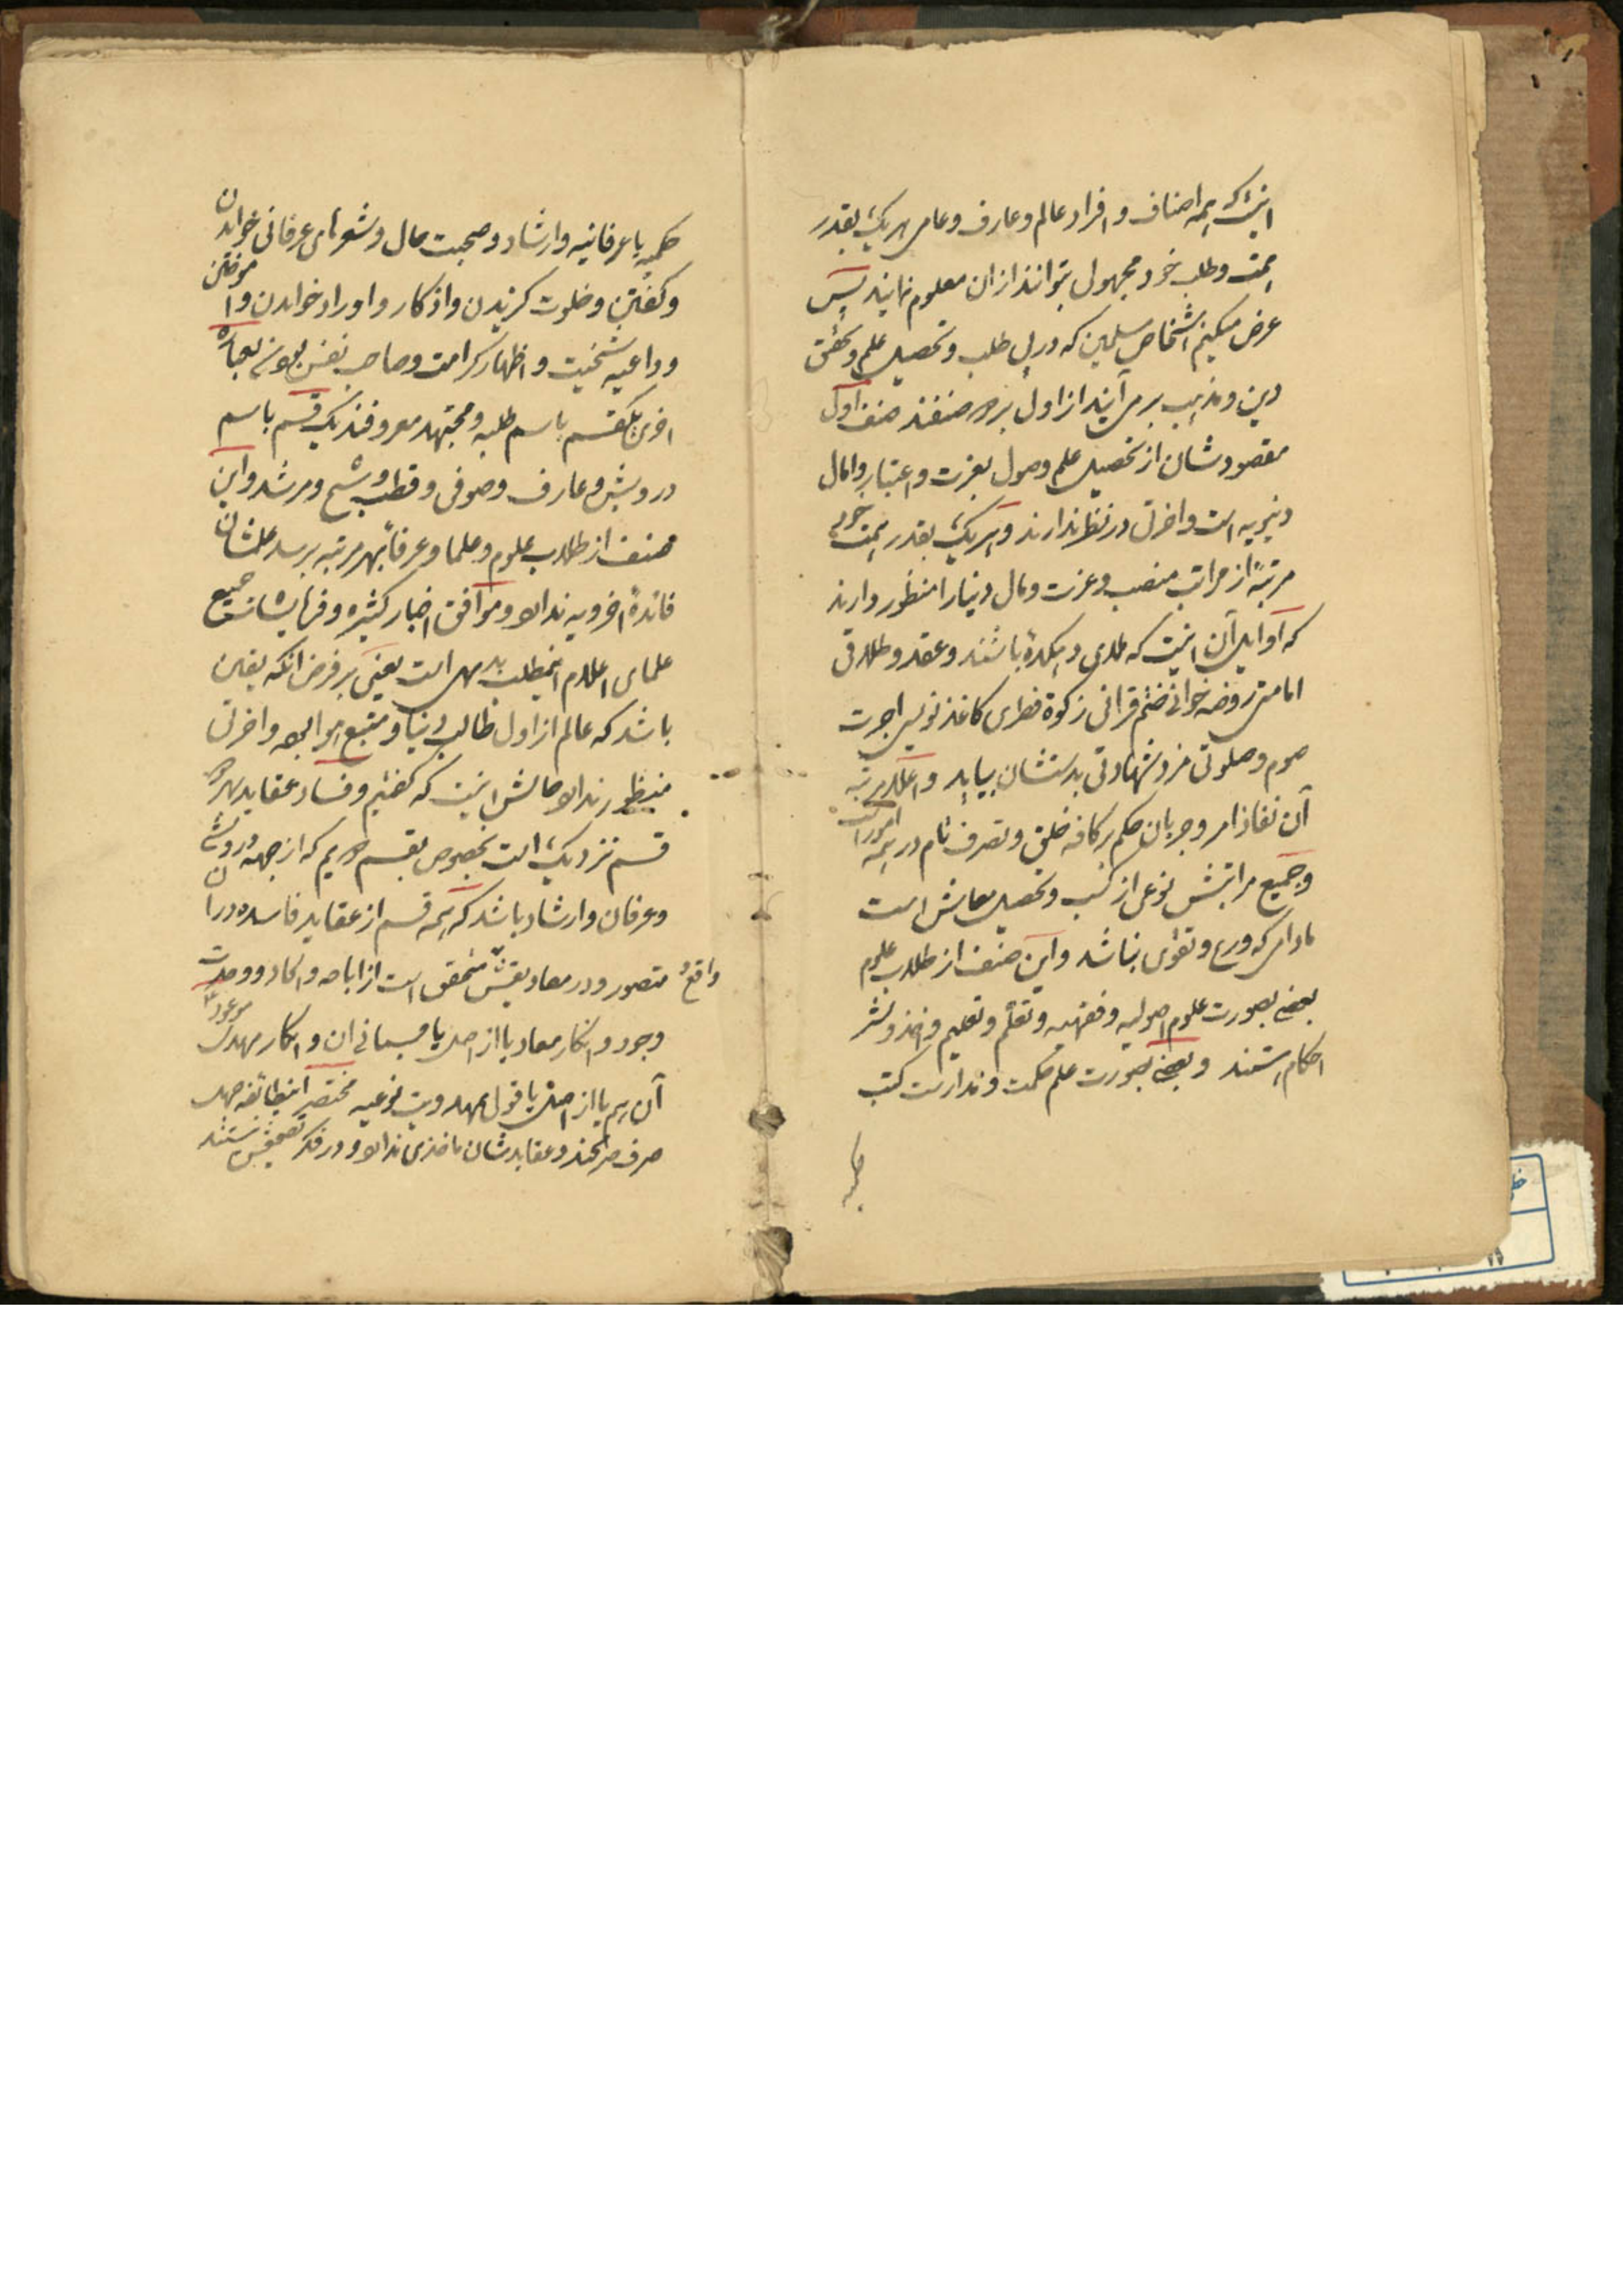 اینست که همه اصناف و افراد عالم و عارف و عامی هر یک بقدر
همت و طلب خود مجهول بتوانند از ان معلوم نمایند پس
عرض میکنم اشخاص مسلمین که در پی طلب و تحصیل علم و تحقق
دین و مذهب بر می آیند از اول بر دو صنفند صنف اول
مقصودشان از تحصیل علم وصول بعزت و اعتبار و امال
دنیویه است و اخرت در نظر ندارند و هر یک بقدر همت خود
مرتبهٔ از مراتب منصب و عزت و مال دنیا را منظور دارند
که اوایل آن اینست که ملای دهکدهٔ باشند و عقد و طلاقی
امامتی روضه خوانی ختم قرانی زکوة فطری کاغذ نویسی اجرت
صوم و صلوتی مزد شهادتی بدستشان بیاید و اعلا مرتبه
آن نفاذ امر و جریان حکم بر کافه خلق و تصرف تام در همه امور است
و جمیع مراتبش نوعی از کسب و تحصیل معاش است
مادامی که ورع و تقوی نباشد و این صنف از طلاب علوم
بعضی بصورت علوم اصولیه و فقهیه و تعلم و تعلیم و اخذ و نشر
احکام هستند و بعضی بصورت علم حکمت و مدارست کتب
حکمیه یا عرفانیه و ارشاد و صحبت حال و شعرهای عرفانی خواندن
و گفتن و خلوت گزیدن و اذکار و اوراد خواندن و آموختن
و داعیه شیخیت و اظهار کرامت و صاحب نفس بودن بعبارة
اخری یکقسم باسم طلبه و مجتهد معروفند یک قسم باسم
درویش و عارف و صوفی و قطب و شیخ و مرشد و این
صنف از طلاب علوم و علما و عرفا بهر مرتبه برسد علمشان
فائدهٔ اخرویه ندارد و موافق اخبار کثیره و فرمایشات جمیع
علمای اعلام اینمطلب بدیهی است یعنی بر فرض انکه یقین
باشد که عالم از اول طالب دنیا و متبع هوا بوده و اخرت
منظور ندارد حالش اینست که گفتیم و فساد عقاید بهر دو
قسم نزدیک است بخصوص بقسم دویم که از جهه درویشی
و عرفان و ارشاد باشد که همه قسم از عقاید فاسده در آن
متصور و در معاد بقینش متحقق است از اباحه و الحاد و وحدت
وجود و انکار معاد یا از اصل یا جسمانی ان و انکار مهدی موعود
آن هم یا از اصل یا قول بمهدویت نوعیه مختصر اینطائفه جهد
صرف میکنند و عقایدشان ماخذی ندارد و در فکر تصحیحش نیستند